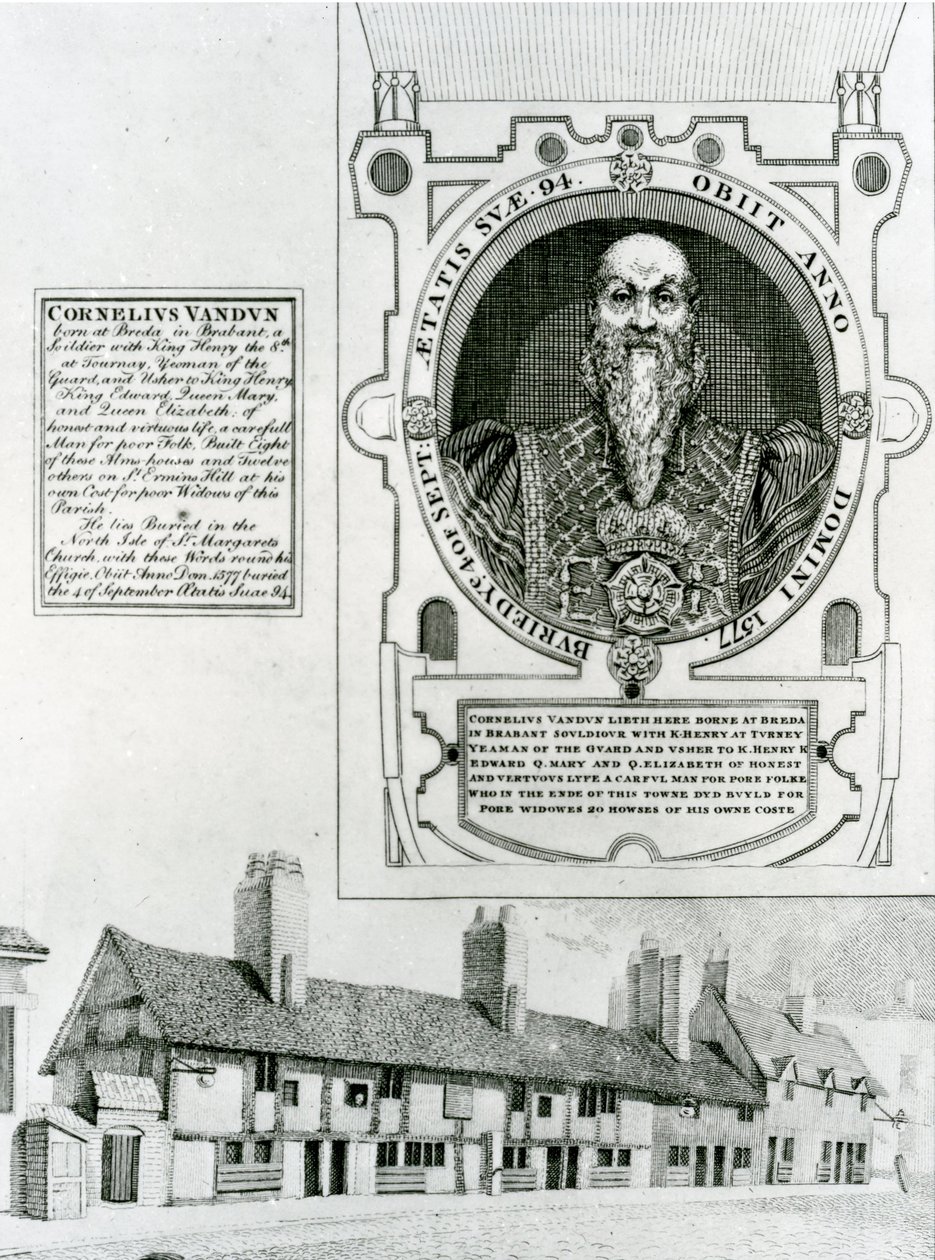 CORNELIVS VANDVN
born at Breda in Brabant, a
Soildier with King Henry the 8.th
at Tournay, Yeoman of the
Guard, and Usher to King Henry,
King Edward, Queen Mary,
and Queen Elizabeth; of
honest and virtuous life, a carefull
Man for poor Folk, Built Eight
of these Alms-houses and Twelve
others on St. Ermins Hill at his
own Cost for poor Widows of this
Parish.
He lies Buried in the
North Isle of St. Margarets
Church, with these Words round his
Effigie. Obiit Anno Dom. 1577 buried
the 4 of September Ætatis Suae 94.
OBIIT ANNO DOMINI 1577.
BVRIED Yᵉ 4 OF SEPT: ÆTATIS SVÆ · 94 ·
CORNELIVS VANDVN LIETH HERE BORNE AT BREDA
IN BRABANT SOVLDIOVR WITH K·HENRY AT TVRNEY
YEAMAN OF THE GVARD AND VSHER TO K. HENRY K
EDWARD Q. MARY AND Q. ELIZABETH OF HONEST
AND VERTVOVS LYFE A CARFVL MAN FOR PORE FOLKE
WHO IN THE ENDE OF THIS TOWNE DYD BVYLD FOR
PORE WIDOWES 20 HOWSES OF HIS OWNE COSTE